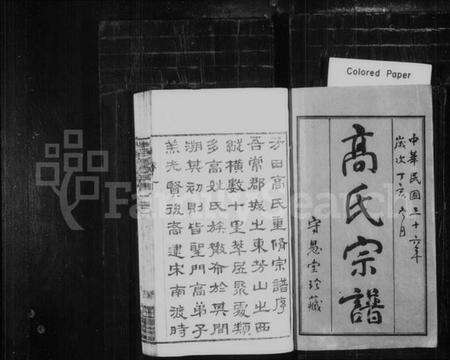 Colored Paper
中華民國三十六年
歲次丁亥六月
高氏宗譜
守慧堂珍藏
方田高氏重脩宗譜序
吾常郡城之東芳山之西
縱横數十里萃居聚處類
多高姓氏族散布於其間
溯其初則皆聖門高弟子
羔先賢後裔建宋南渡時
FamilySearch